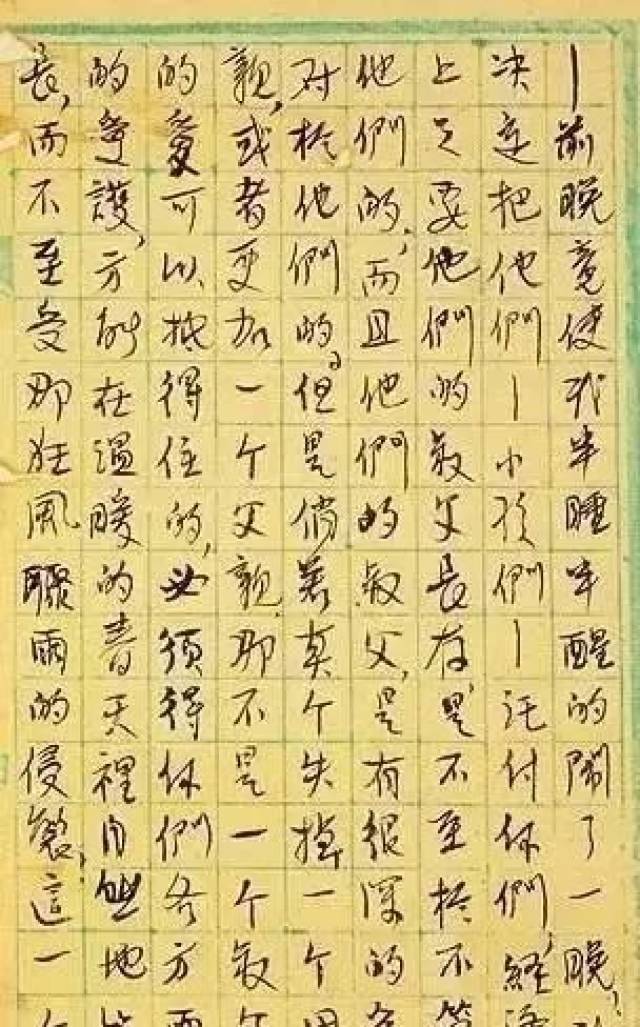 —前晚竟使我半睡半醒的鬧了一晚，
决定把他們—小孩們—託付你們，經濟
上只要他們的叔父長存，是不至於不
他們的，而且他們的叔父，是有很深的
对於他們的。但是倘若真个失掉一个
親，或者更加一个父親，那不是一个叔
的愛可以抵得住的，必須得你們各方
的愛護，方能在溫暖的春天裡自然地
長，而不至受那狂風驟雨的侵襲，這一